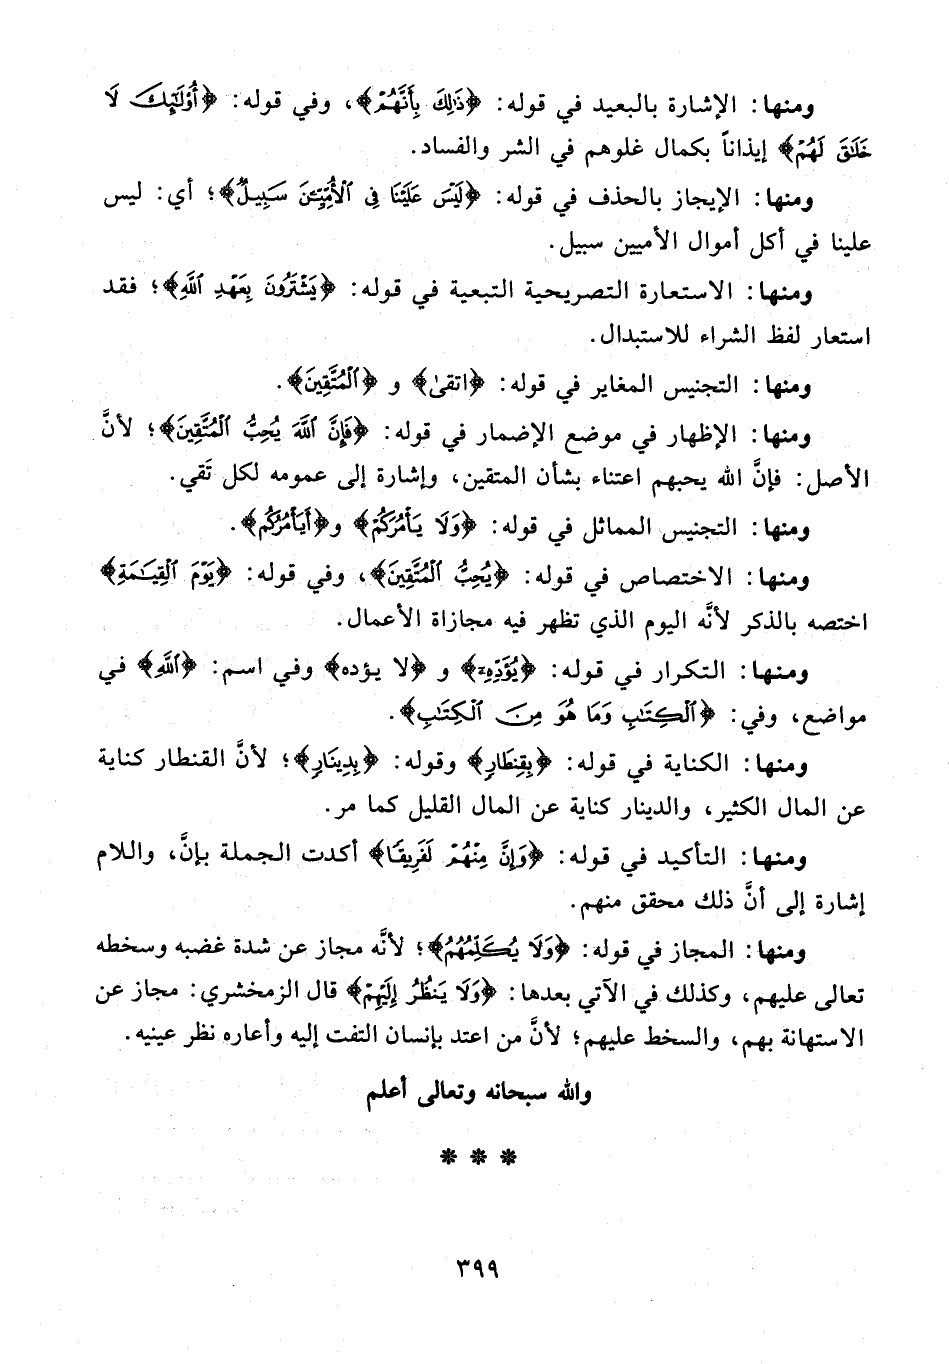 ومنها: الإشارة بالبعيد في قوله: ﴿ذَٰلِكَ بِأَنَّهُمْ﴾، وفي قوله: ﴿أُوْلَٰٓئِكَ لَا
خَلَٰقَ لَهُمْ﴾ إيذاناً بكمال غلوهم في الشر والفساد.
ومنها: الإيجاز بالحذف في قوله: ﴿لَيْسَ عَلَيْنَا فِى ٱلْأُمِّيِّـۧنَ سَبِيلٌ﴾؛ أي: ليس
علينا في أكل أموال الأميين سبيل.
ومنها: الاستعارة التصريحية التبعية في قوله: ﴿يَشْتَرُونَ بِعَهْدِ ٱللَّهِ﴾؛ فقد
استعار لفظ الشراء للاستبدال.
ومنها: التجنيس المغاير في قوله: ﴿اتقىٰ﴾ و ﴿ٱلْمُتَّقِينَ﴾.
ومنها: الإظهار في موضع الإضمار في قوله: ﴿فَإِنَّ ٱللَّهَ يُحِبُّ ٱلْمُتَّقِينَ﴾؛ لأنَّ
الأصل: فإنَّ الله يحبهم اعتناء بشأن المتقين، وإشارة إلى عمومه لكل تَقي.
ومنها: التجنيس المماثل في قوله: ﴿وَلَا يَأْمُرَكُمْ﴾ و﴿أَيَأْمُرُكُم﴾.
ومنها: الاختصاص في قوله: ﴿يُحِبُّ ٱلْمُتَّقِينَ﴾، وفي قوله: ﴿يَوْمَ ٱلْقِيَٰمَةِ﴾
اختصه بالذكر لأنَّه اليوم الذي تظهر فيه مجازاة الأعمال.
ومنها: التكرار في قوله: ﴿يُؤَدِّهِۦ﴾ و ﴿لا يؤده﴾ وفي اسم: ﴿ٱللَّهِ﴾ في
مواضع، وفي: ﴿ٱلْكِتَٰبِ وَمَا هُوَ مِنَ ٱلْكِتَٰبِ﴾.
ومنها: الكناية في قوله: ﴿بِقِنطَارٍ﴾ وقوله: ﴿بِدِينَارٍ﴾؛ لأنَّ القنطار كناية
عن المال الكثير، والدينار كناية عن المال القليل كما مر.
ومنها: التأكيد في قوله: ﴿وَإِنَّ مِنْهُمْ لَفَرِيقًا﴾ أكدت الجملة بإنَّ، واللام
إشارة إلى أنَّ ذلك محقق منهم.
ومنها: المجاز في قوله: ﴿وَلَا يُكَلِّمُهُمُ﴾؛ لأنَّه مجاز عن شدة غضبه وسخطه
تعالى عليهم، وكذلك في الآتي بعدها: ﴿وَلَا يَنظُرُ إِلَيْهِمْ﴾ قال الزمخشري: مجاز عن
الاستهانة بهم، والسخط عليهم؛ لأنَّ من اعتد بإنسان التفت إليه وأعاره نظر عينيه.
والله سبحانه وتعالى أعلم
* * *
٣٩٩